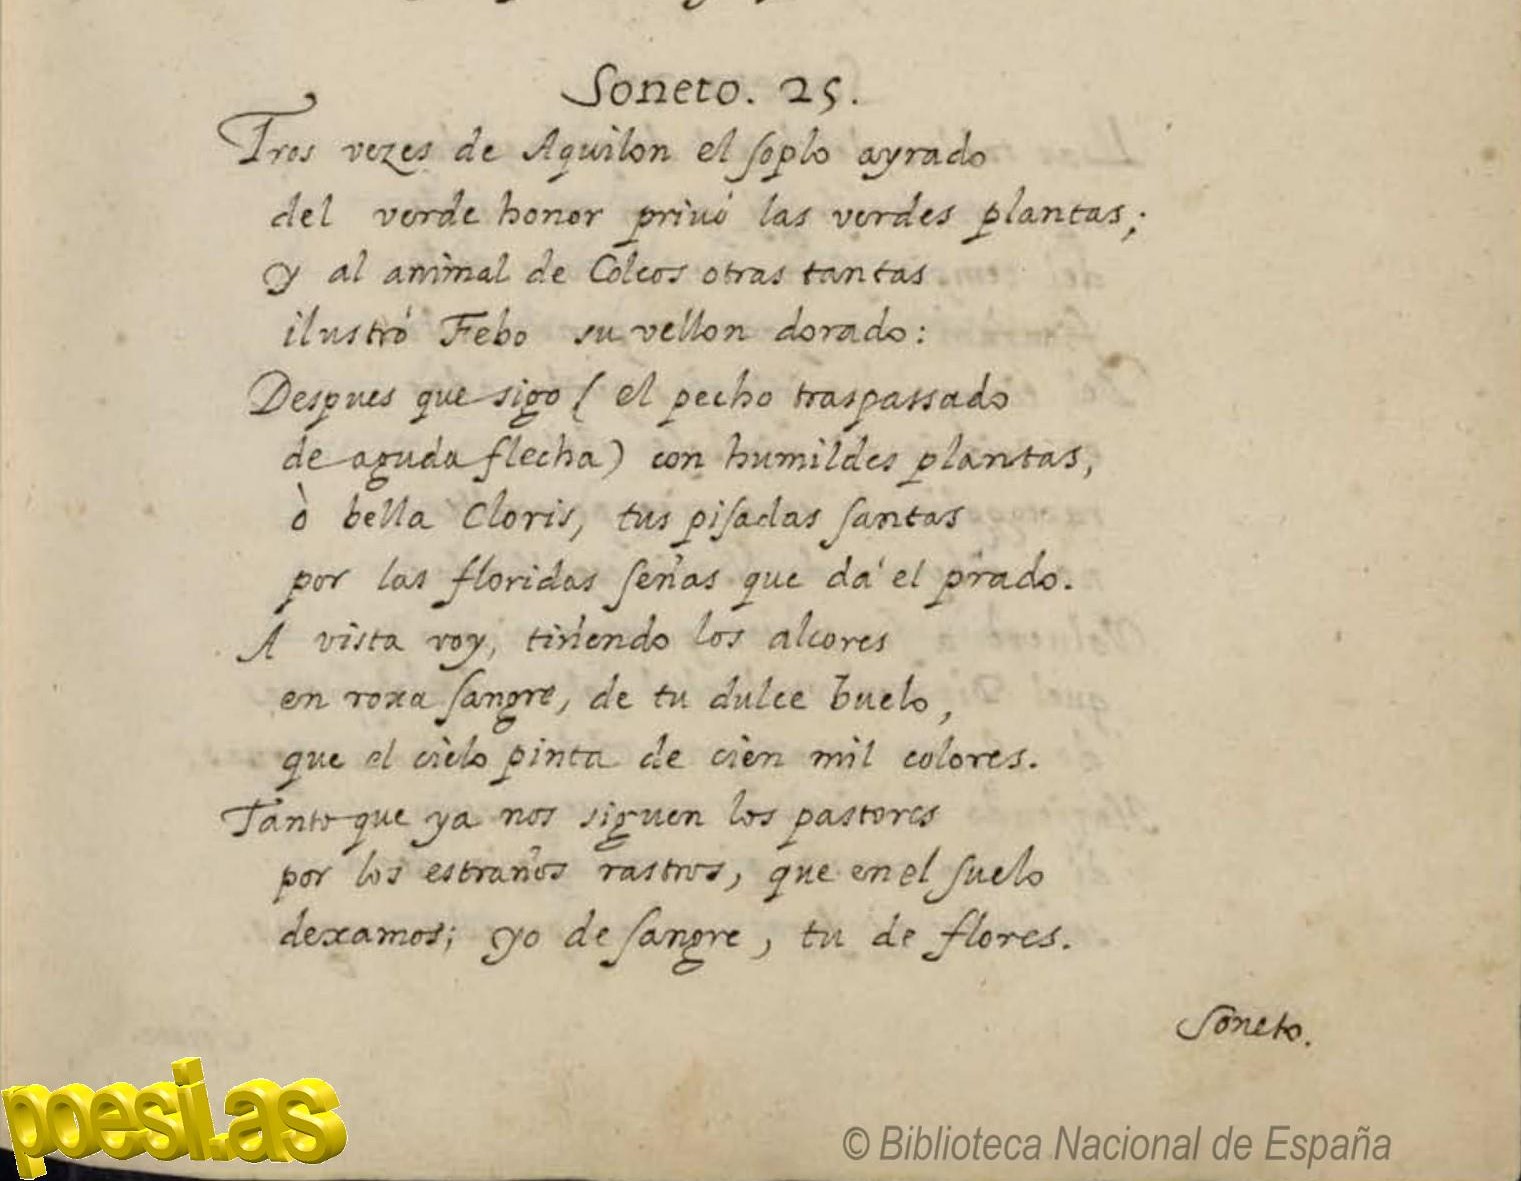 Soneto. 25.
Tres vezes de Aquilon el soplo ayrado
del verde honor priuó las verdes plantas;
y al animal de Colcos otras tantas
ilustró Febo su vellon dorado:
Despues que sigo (el pecho traspassado
de aguda flecha) con humildes plantas,
ò bella Cloris, tus pisadas santas
por las floridas señas que da' el prado.
A vista voy, tiñendo los alcores
en roxa sangre, de tu dulce buelo,
que el cielo pinta de cien mil colores.
Tanto que ya nos siguen los pastores
por los estraños rastros, que en el suelo
dexamos; yo de sangre, tu de flores.
Soneto.
poesi.as
© Biblioteca Nacional de España